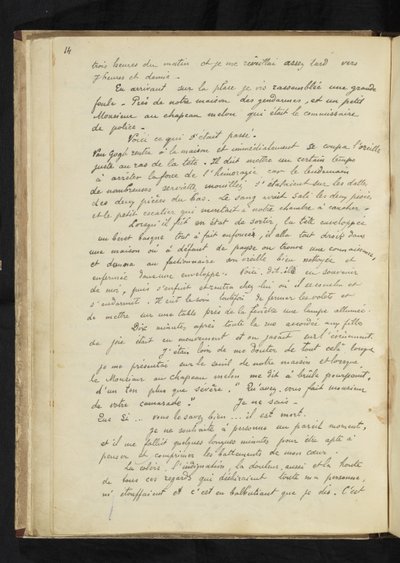 14
trois heures du matin et je me réveillai assez tard vers
7 heures et demie.
En arrivant sur la place je vis rassemblée une grande
foule. Près de notre maison des gendarmes, et un petit
Monsieur au chapeau melon qui était le commissaire
de police.
Voici ce qui s'était passé.
Van Gogh rentra à la maison et immédiatement se coupa l'oreille
juste au ras de la tête. Il dut mettre un certain temps
à arrêter la force de l'hémoragie car le lendemain
de nombreuses serviettes mouillées s'étalaient sur les dalles
des deux pièces du bas. Le sang avait sali les deux pièces
et le petit escalier qui montait à notre chambre à coucher.
Lorsqu'il fut en état de sortir, la tête enveloppée
un beret basque tout à fait enfoncé, il alla tout droit dans
une maison où à défaut de payse on trouve une connaissance,
et donna au factionnaire son oreille bien nettoyée et
enfermée dans une enveloppe. Voici, dit-il en souvenir
de moi, puis s'enfuit et rentra chez lui où il se coucha et
s'endormit. Il eut le soin toutefois de fermer les volets et
de mettre sur une table près de la fenêtre une lampe allumée.
Dix minutes après toute la rue accordée aux filles
de joie était en mouvement et on jasait sur l'événement.
J'étais loin de me douter de tout cela lorsque
je me présentai sur le seuil de notre maison et lorsque
le Monsieur au chapeau melon me dit à brûle pourpoint,
d'un ton plus que sévère. "Qu'avez vous fait monsieur
de votre camarade" Je ne sais -
Que si .. vous le savez bien ... il est mort.
Je ne souhaite à personne un pareil moment,
et il me fallut quelques longues minutes pour être apte à
penser et comprimer les battements de mon cœur.
La colère, l'indignation, la douleur aussi et la honte
de tous ces regards qui déchiraient toute ma personne,
m'étouffaient et c'est en balbutiant que je dis. C'est